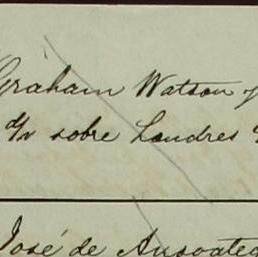 Graham Watson y
d/v sobre Londres
José de Ansoateg